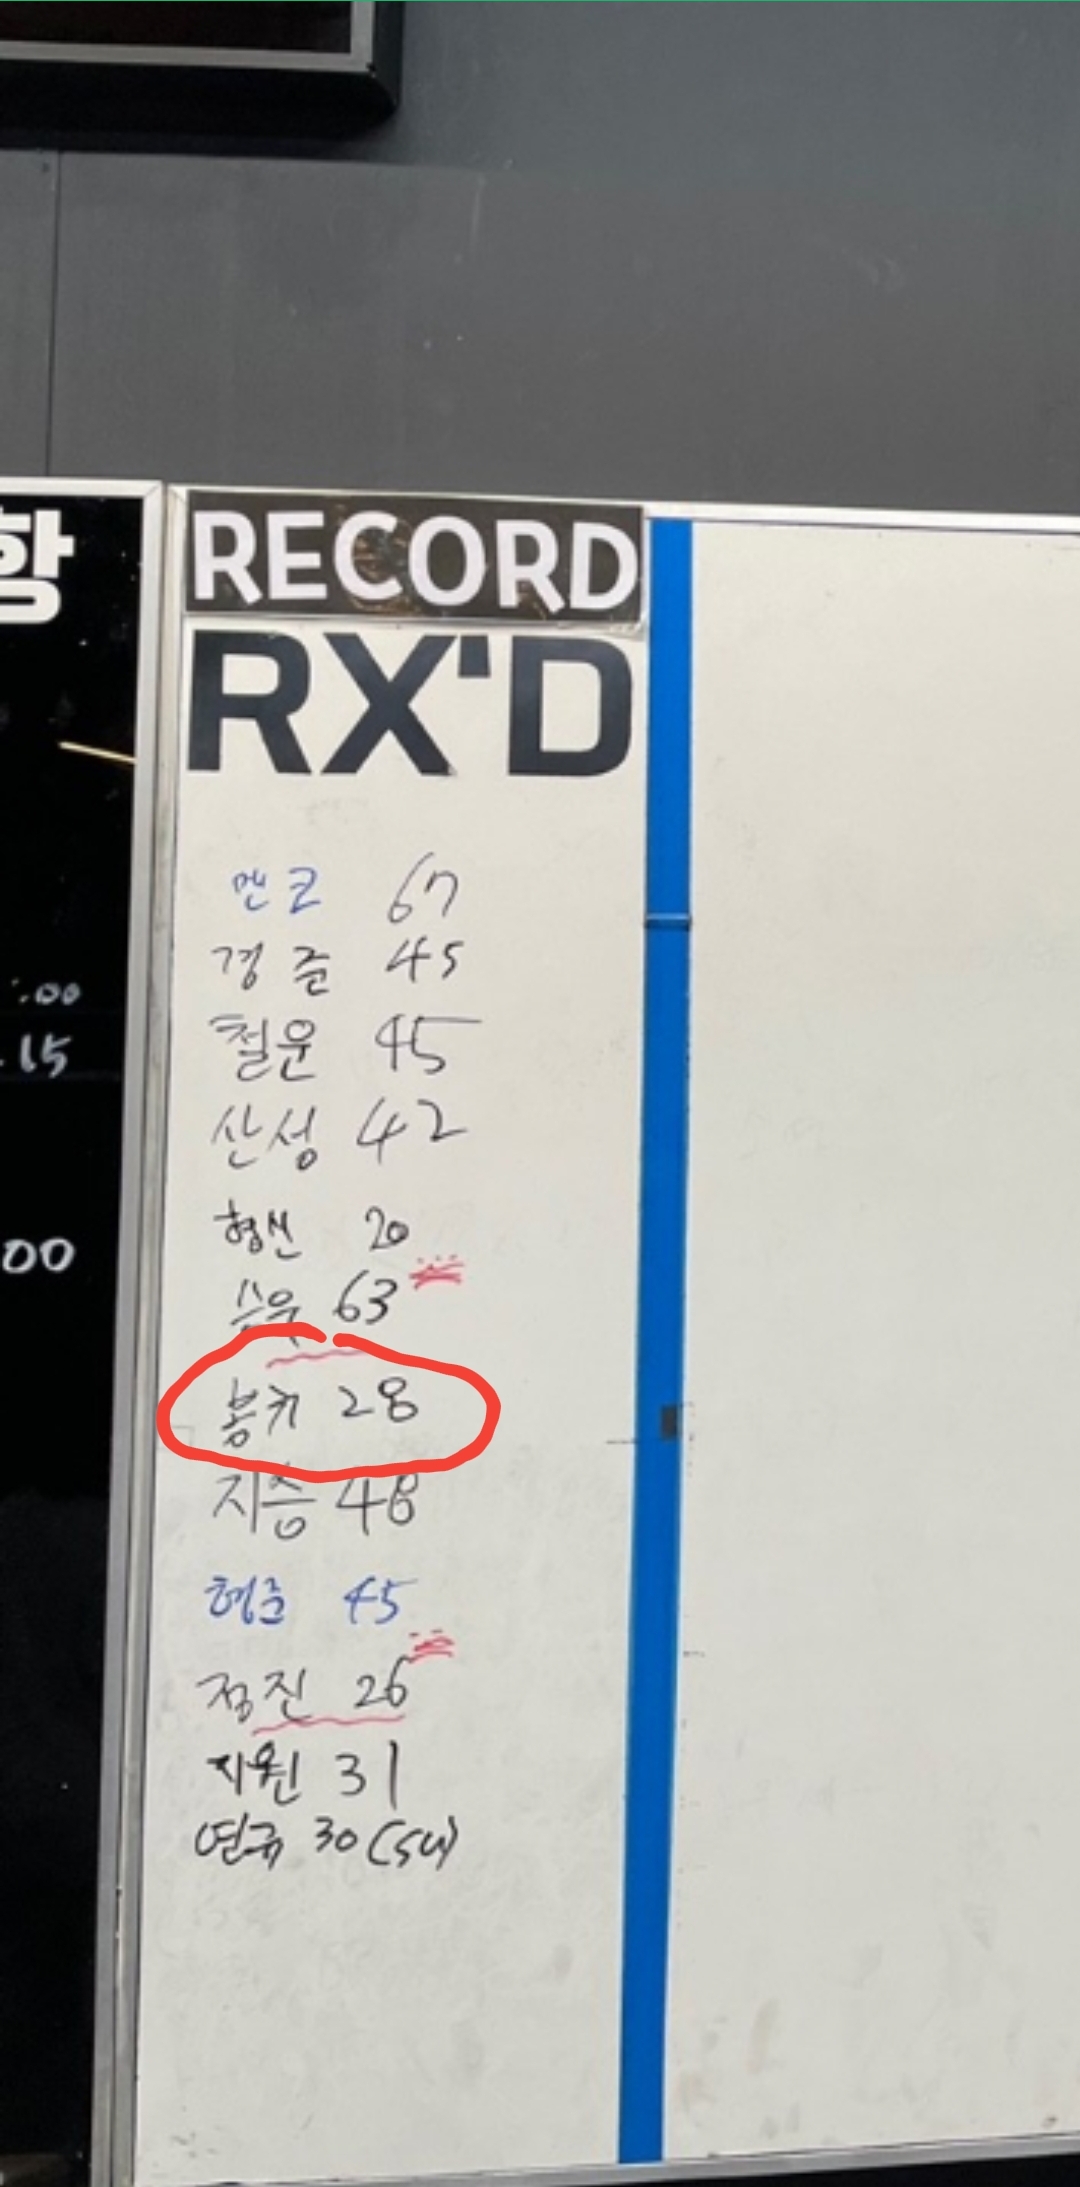 항
:00
15
00
RECORD
RX'D
멘코 67
경준 45
철운 45
산성 42
형산 20
승우 63
봉키 28
지승 48
형준 45
정진 26
지원 31
연규 30 (SU)